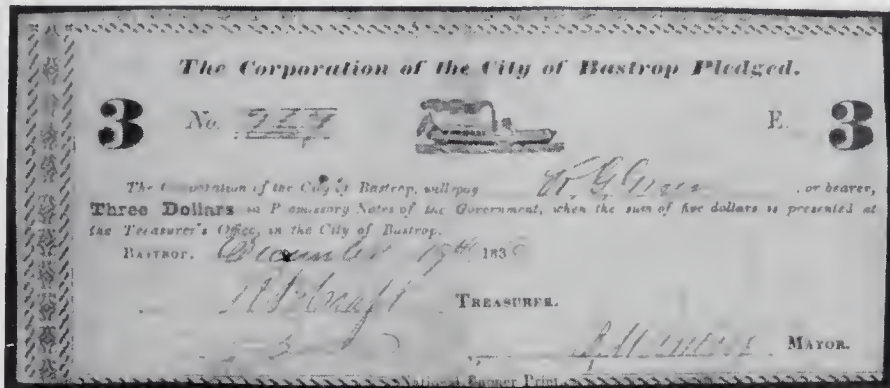 The Corporation of the City of Bastrop Pledged.
3 No. E. 3
The Corporation of the City of Bastrop, will pay or bearer,
Three Dollars in Promissory Notes of the Government, when the sum of five dollars is presented at
the Treasurer's Office, in the City of Bastrop.
BASTROP, December 19th 183
TREASURER.
MAYOR.
National Banner Print